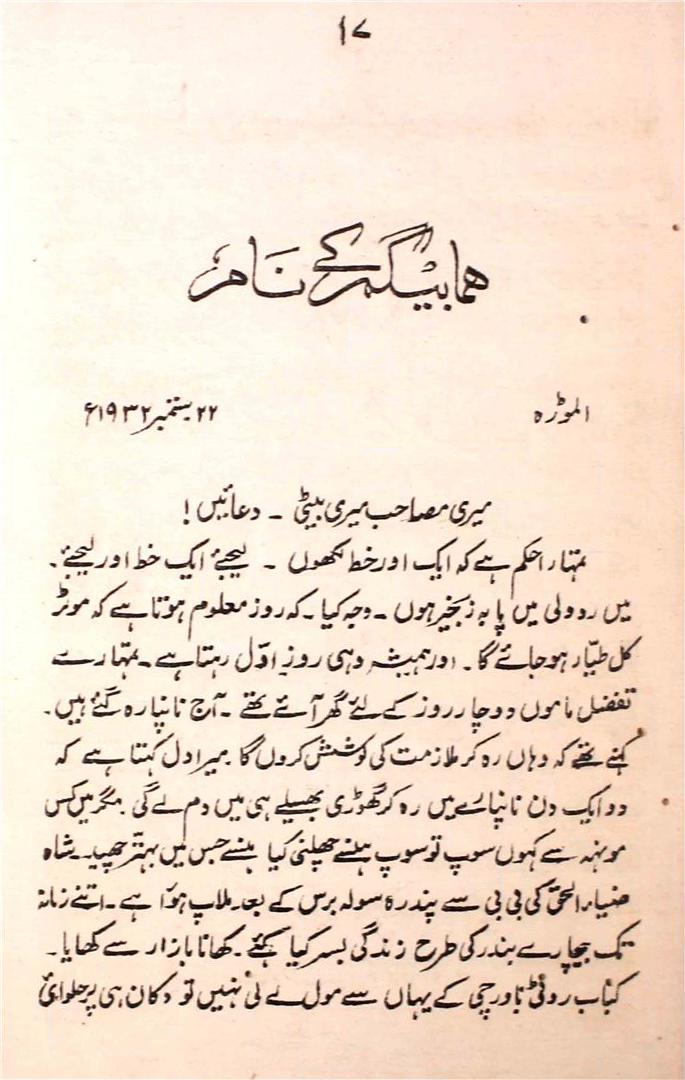 ۱۷
ھما بیگم کے نام
الموڑہ
۲۲ ستمبر ۱۹۳۲ء
میری مصاحب میری بیٹی ۔ دعائیں !
تمہارا حکم ہے کہ ایک اور خط لکھوں ۔ لیجئے ایک خط اور لیجئے۔
میں ردولی میں پا بہ زنجیر ہوں ۔ وجہ کیا ۔ کہ روز معلوم ہوتا ہے کہ موٹر
کل طیّار ہو جائے گا ۔ اور ہمیشہ وہی روزِ اوّل رہتا ہے ۔ تمہارے
تفضل ماموں دو چار روز کے لئے گھر آئے تھے ۔ آج نانپارہ گئے ہیں۔
کہتے تھے کہ وہاں رہ کر ملازمت کی کوشش کروں گا میرا دل کہتا ہے کہ
دو ایک دن نانپارے میں رہ کر گھوڑی بھسیلے ہی میں دم لے گی مگر میں کس
مونہہ سے کہوں سوپ تو سوپ ہنسے چھلنی کیا ہنسے جس میں بہتّر چھید ۔ شاہ
ضیاء الحق کی بی بی سے پندرہ سولہ برس کے بعد ملاپ ہوا ہے ۔ اتنے زمانہ
تک بیچارے بندر کی طرح زندگی بسر کیا کئے ۔ کھانا بازار سے کھایا ۔
کباب روٹی ناورچی کے یہاں سے مول لے لی نہیں تو دکان ہی پر حلوائی